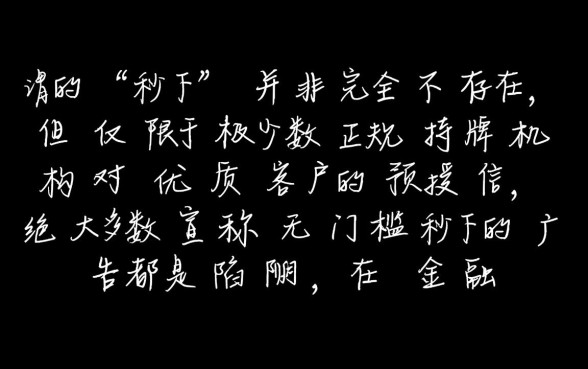 谓的“秒下”并非完全不存在，
但仅限于极少数正规持牌机
构对优质客户的预授信，
绝大多数宣称无门槛秒下的广
告都是陷阱，在金融